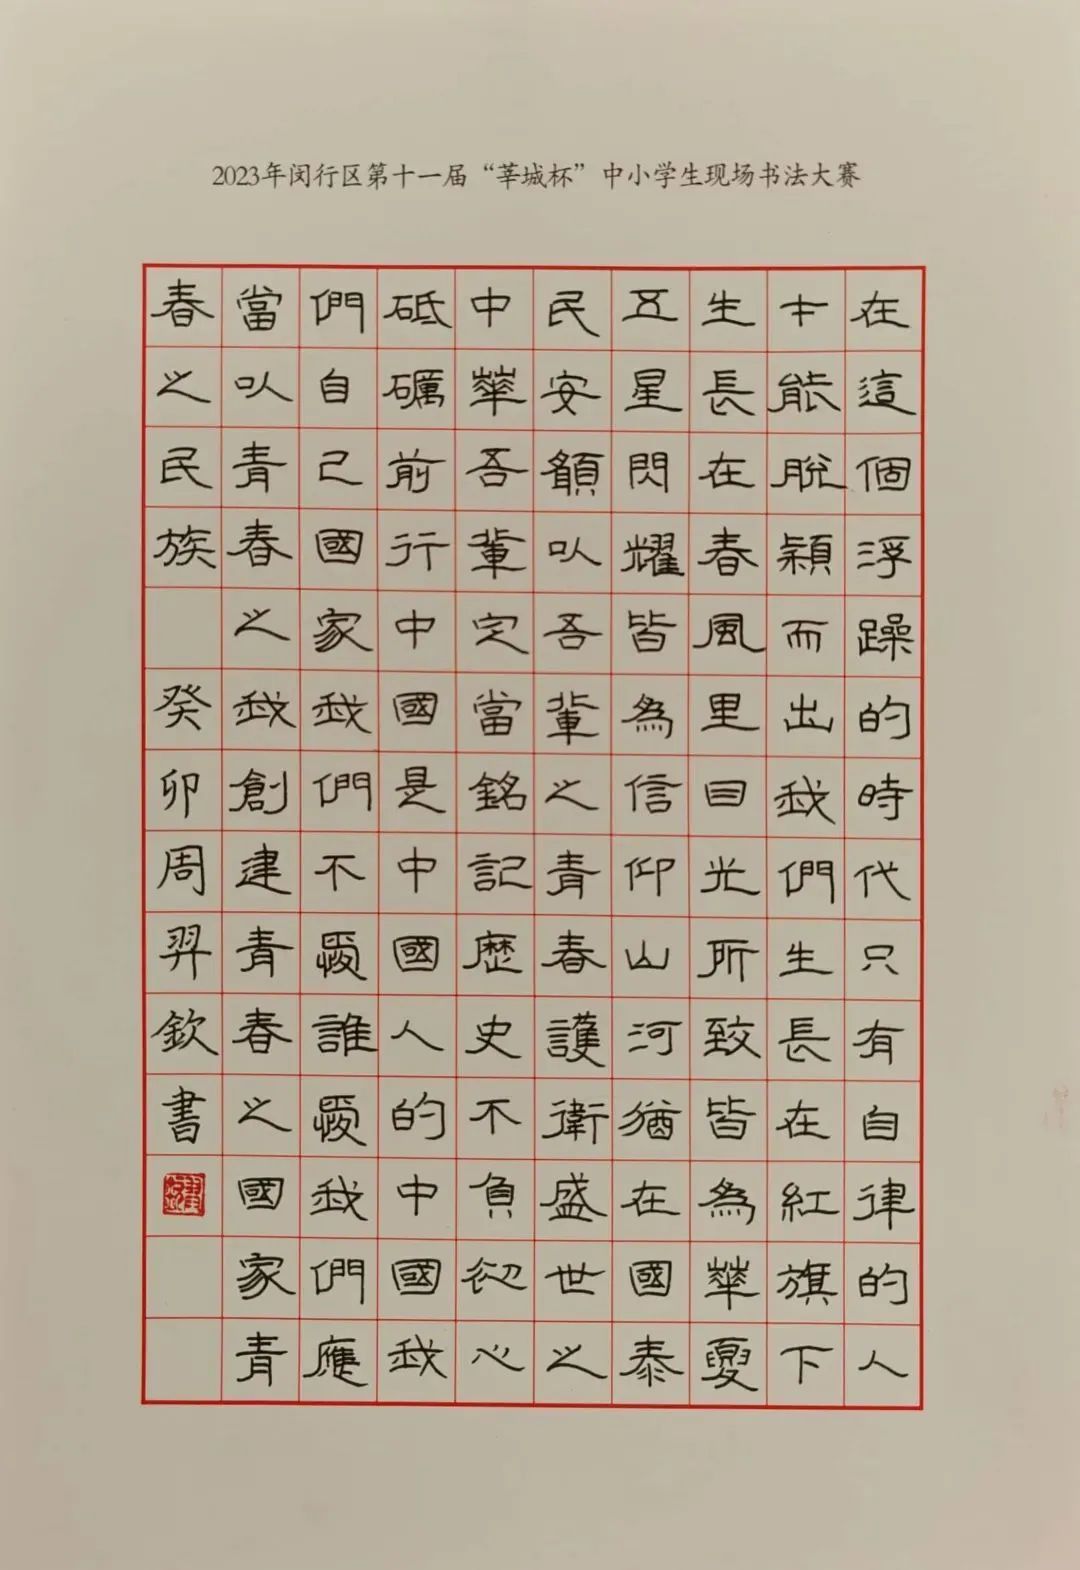 2023年闵行区第十一届“莘城杯”中小学生现场书法大赛
在這個浮躁的時代只有自律的人
才能脫穎而出我們生長在紅旗下
生長在春風里目光所致皆為華夏
五星閃耀皆為信仰山河猶在國泰
民安願以吾輩之青春護衛盛世之
中華吾輩定當銘記歷史不負初心
砥礪前行中國是中國人的中國我
們自己國家我們不愛誰愛我們應
當以青春之我創建青春之國家青
春之民族 癸卯周羿欽書